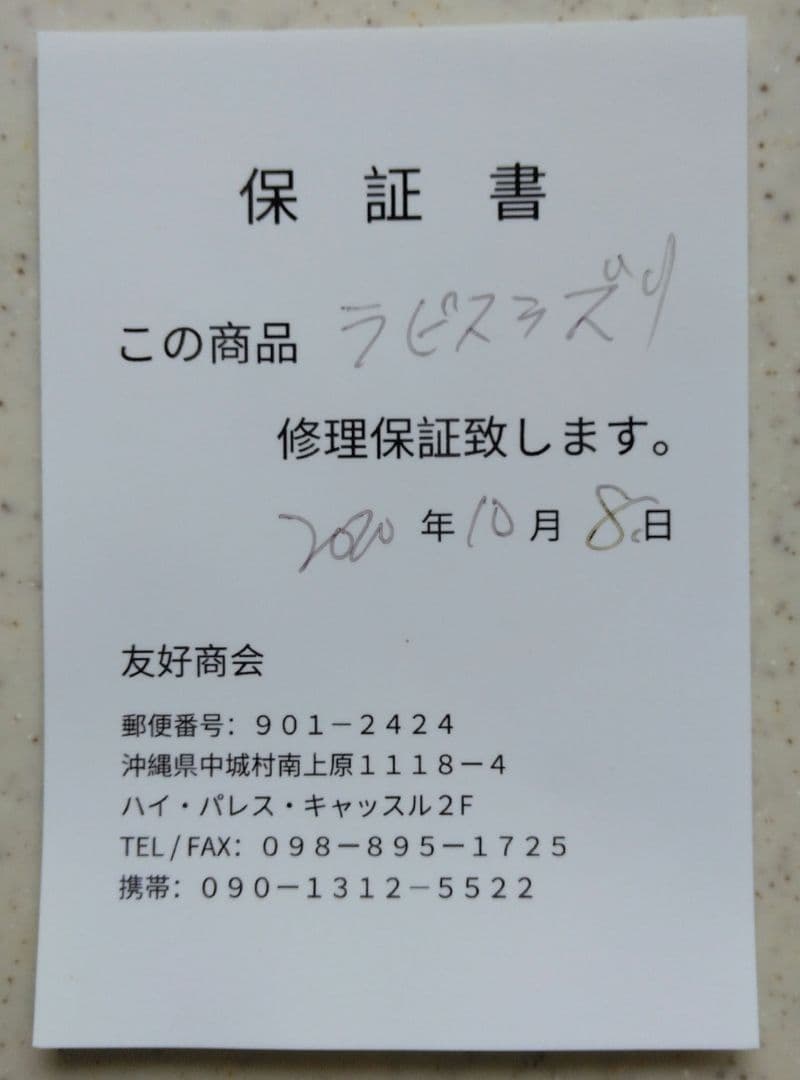 保証書
この商品 ラピスラズリ
修理保証致します。
2020年10月8日
友好商会
郵便番号：９０１－２４２４
沖縄県中城村南上原１１１８－４
ハイ・パレス・キャッスル２F
TEL/FAX：０９８－８９５－１７２５
携帯：０９０－１３１２－５５２２